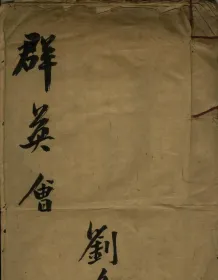 群英會
劉